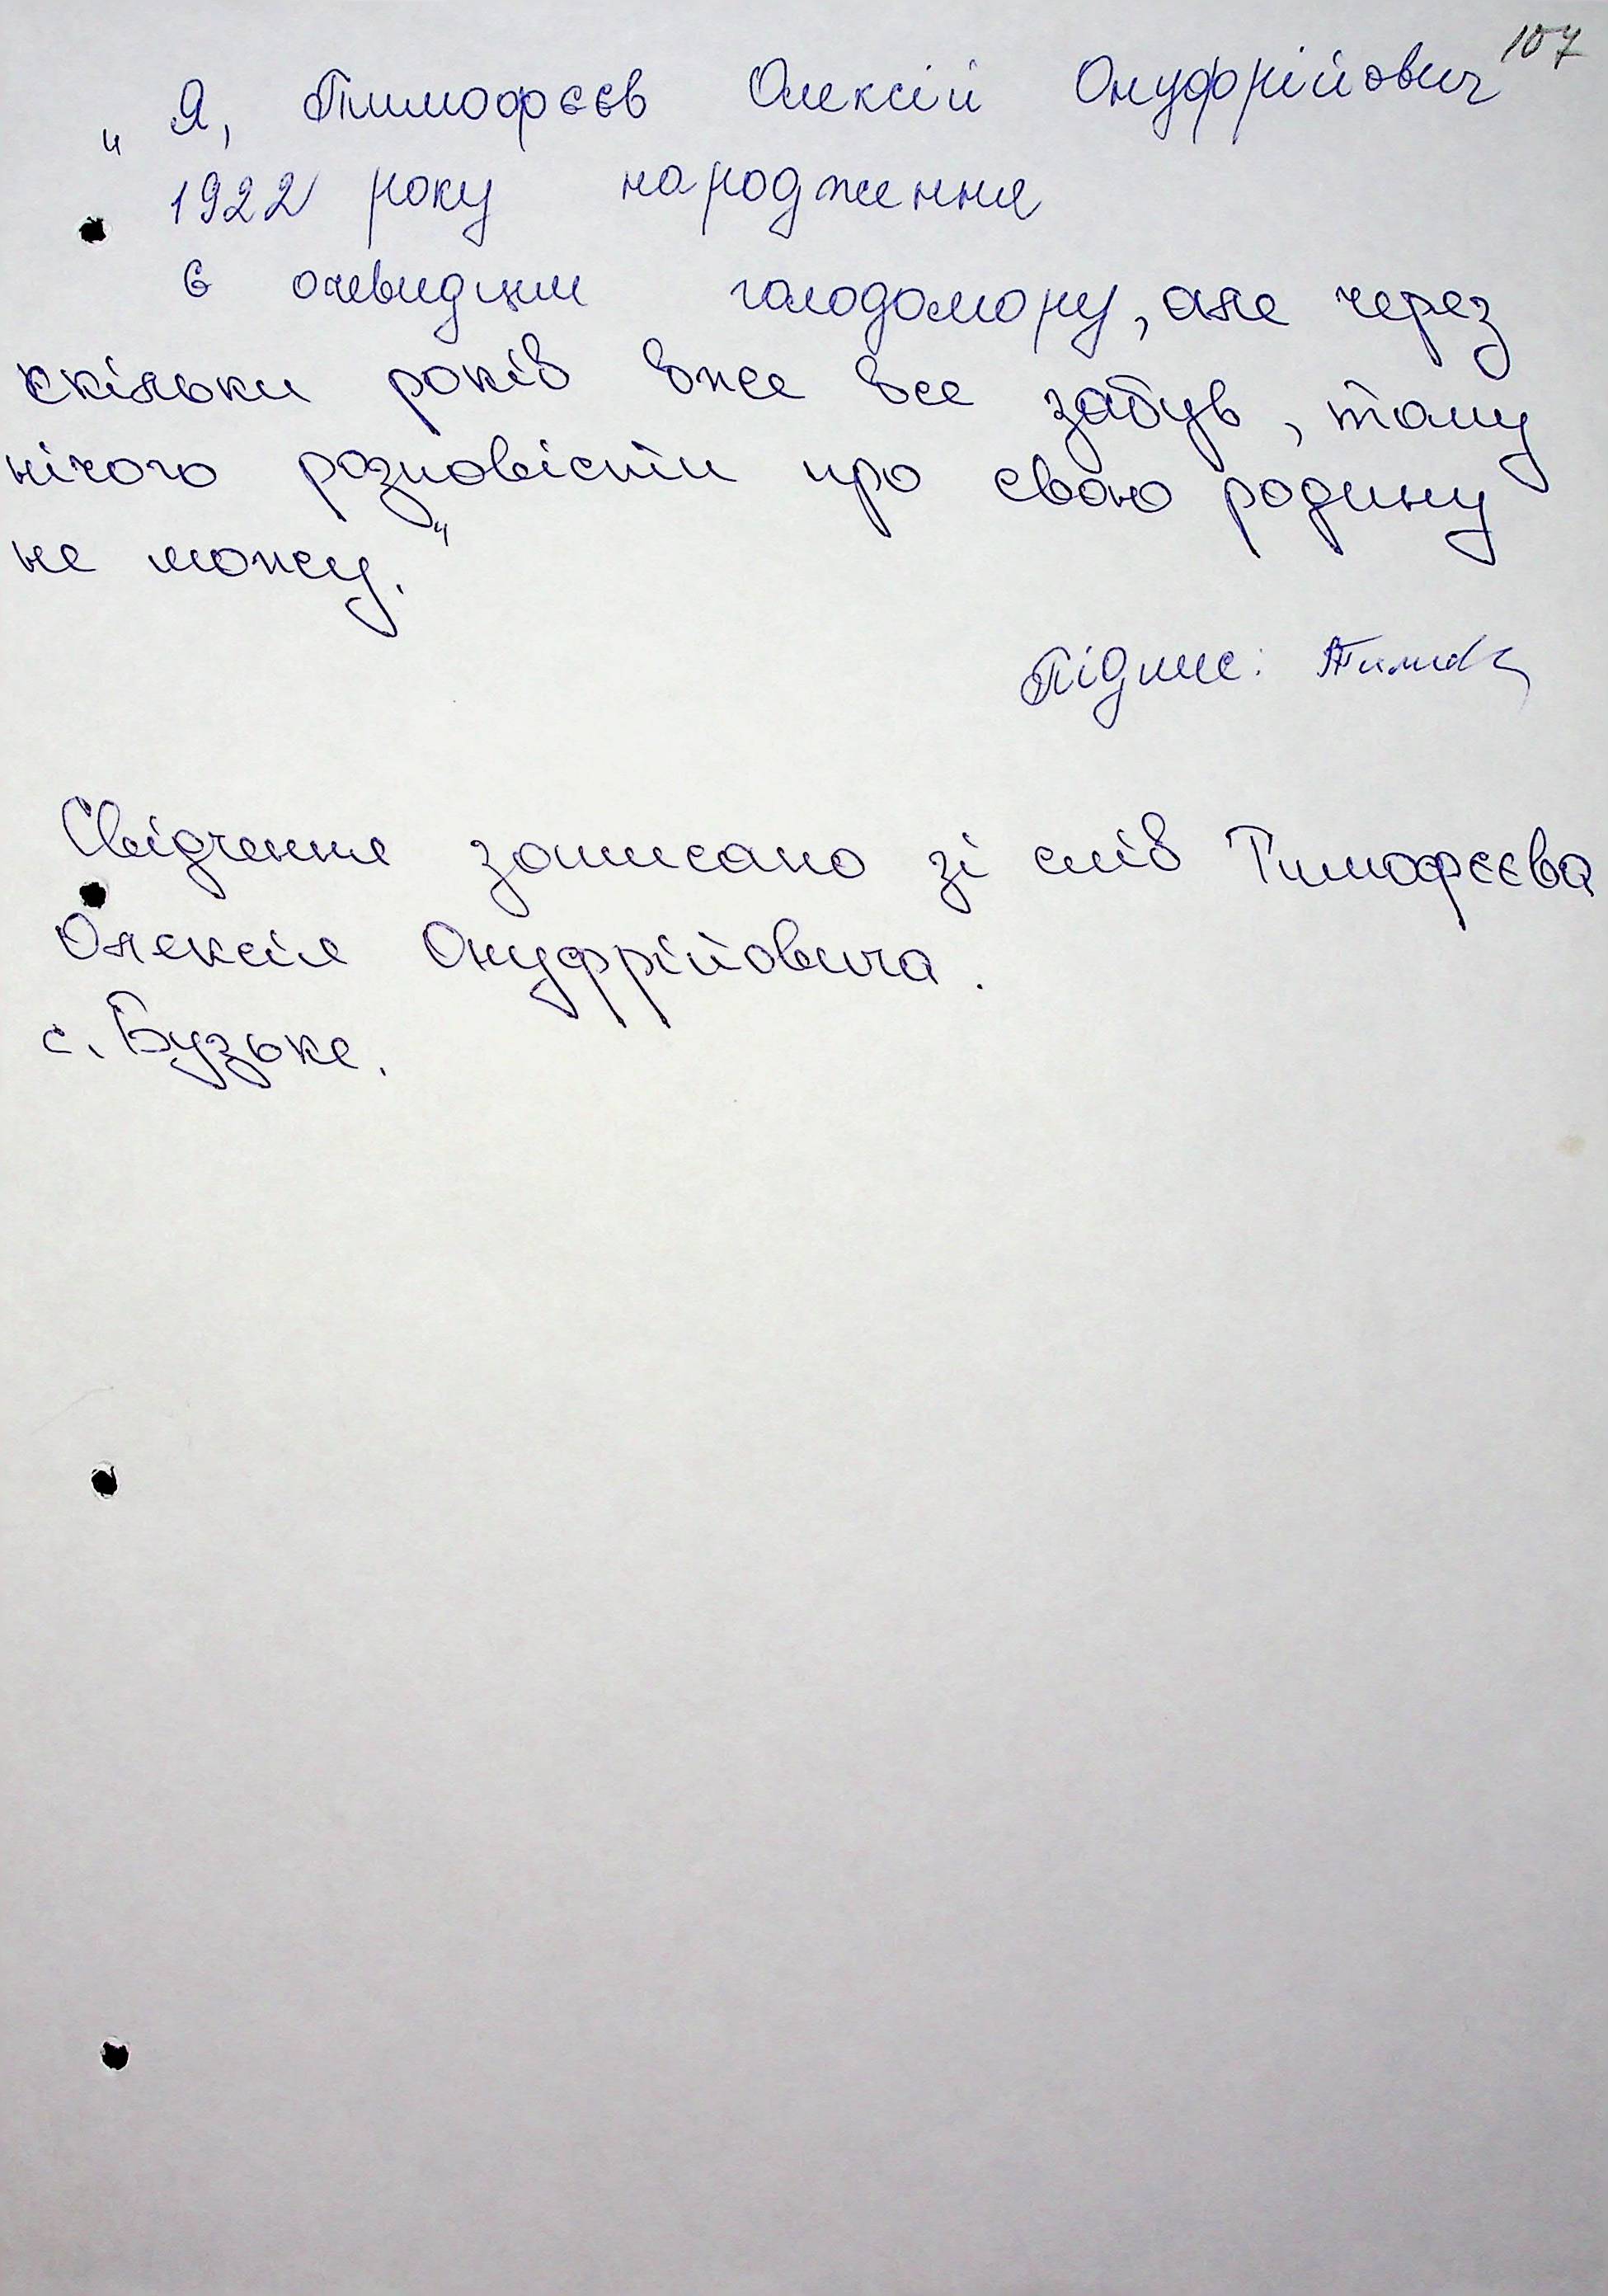 107
„Я, Тимофєєв Олексій Онуфрійович
1922 року народження
є очевидцем голодомору, але через
скільки років вже все забув, тому
нічого розповісти про свою родину
не можу."
Підпис:
Свідчення записано зі слів Тимофєєва
Олексія Онуфрійовича.
с. Бузьке.